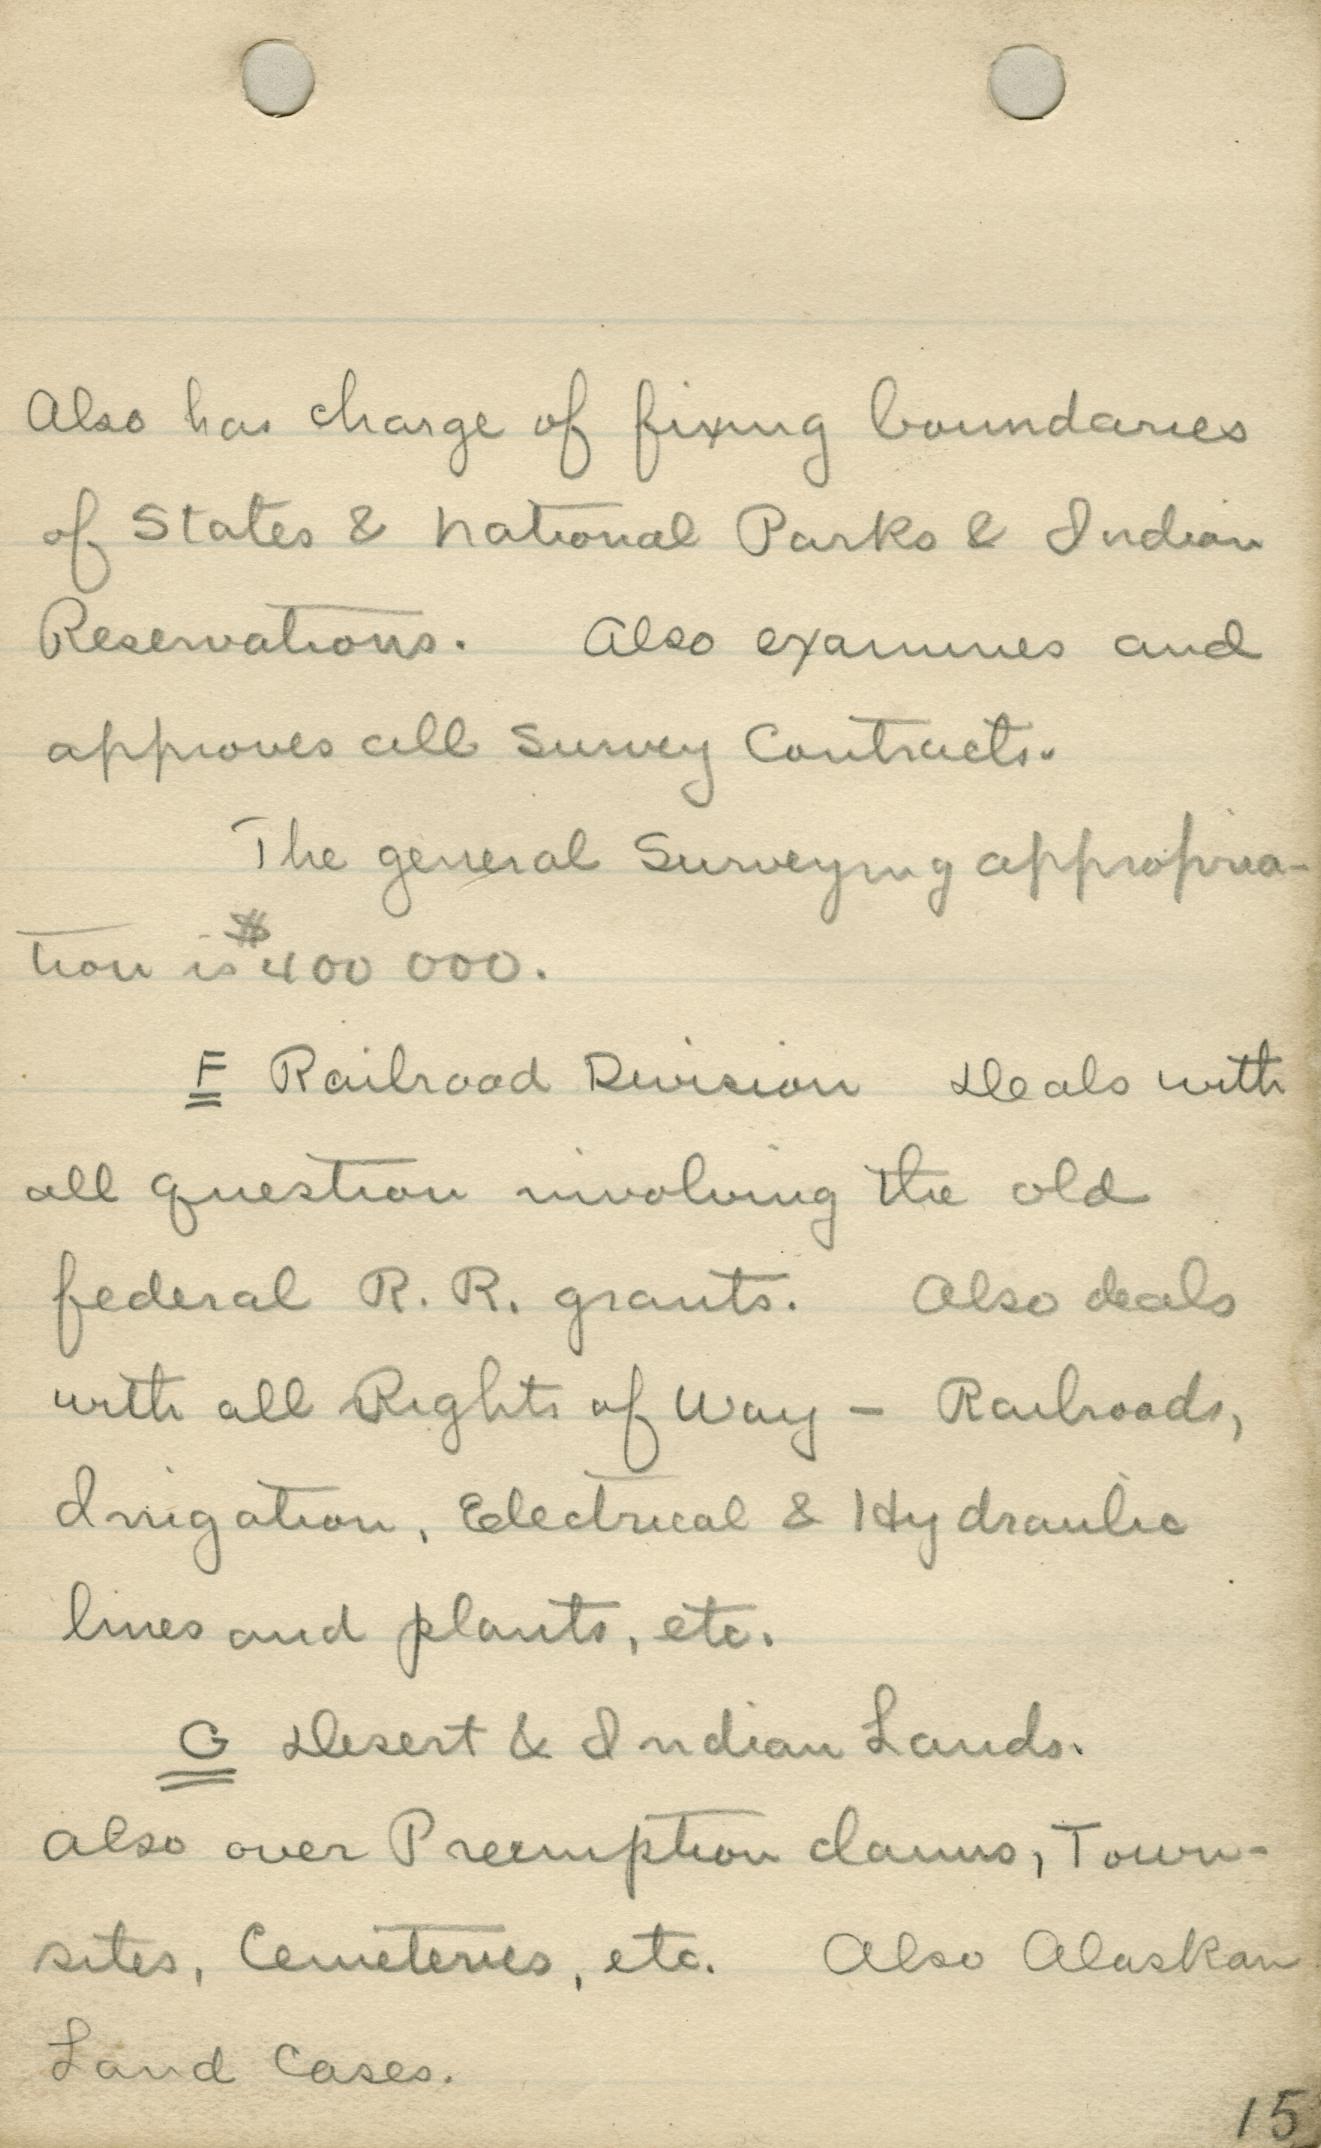 Also has charge of fixing boundaries
of States & National Parks & Indian
Reservations. Also examines and
approves all Survey Contracts.
The general Surveying appropria-
tion is $400 000.
F Railroad Division Deals with
all question involving the old
federal R. R. grants. Also deals
with all Rights of Way – Railroads,
Irrigation, Electrical & Hydraulic
lines and plants, etc.
G Desert & Indian Lands.
also over Preemption claims, Town-
sites, Cemeteries, etc. Also Alaskan
Land Cases.
15